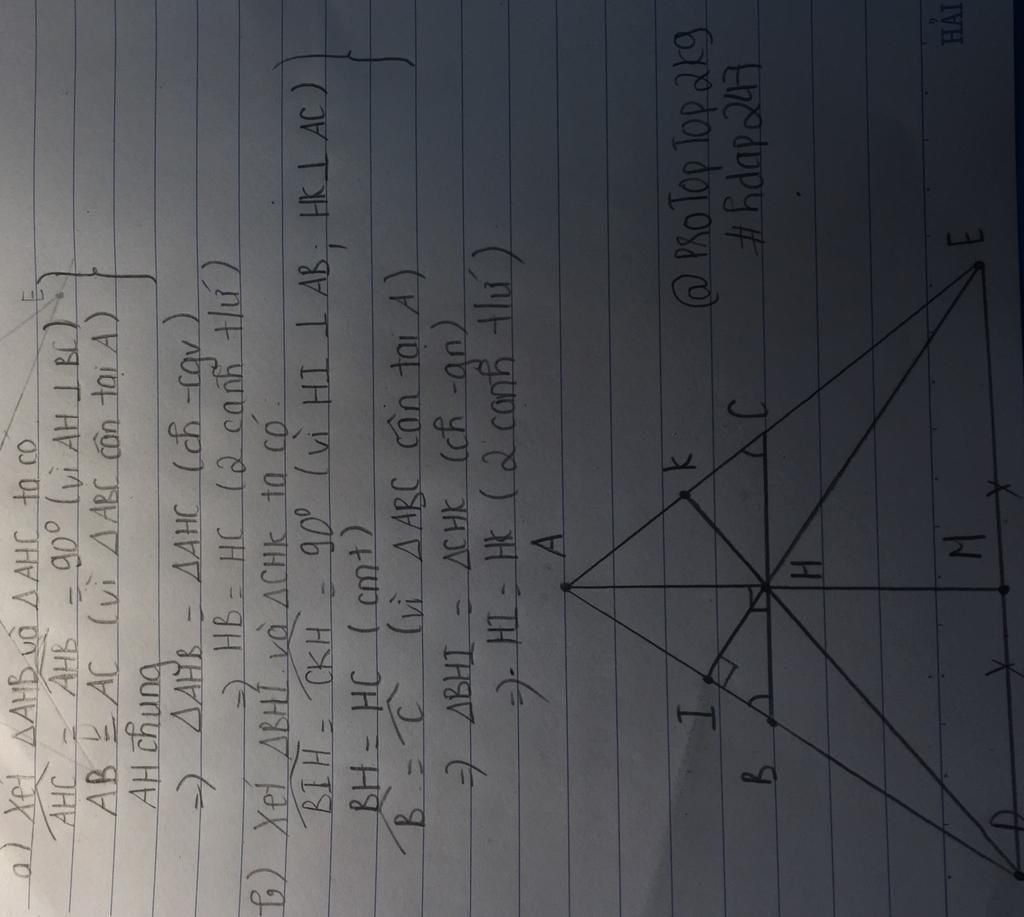 a) Xét ΔAHB và ΔAHC ta có
AHC = AHB = 90° (vì AH ⊥ BC)
AB = AC (vì ΔABC cân tại A)
AH chung
=) ΔAHB = ΔAHC (ch-cgv)
=) HB = HC (2 cạnh t/ứ)
b) Xét ΔBHI và ΔCHK ta có
BIH = CKH = 90° (vì HI ⊥ AB; HK ⊥ AC)
BH = HC (cmt)
B = C (vì ΔABC cân tại A)
=) ΔBHI = ΔCHK (ch-gn)
=) HI = HK (2 cạnh t/ứ)
A
I
K
B
H
C
D
M
E
@PROTopTop2kg
#hdap247
HẢI
E